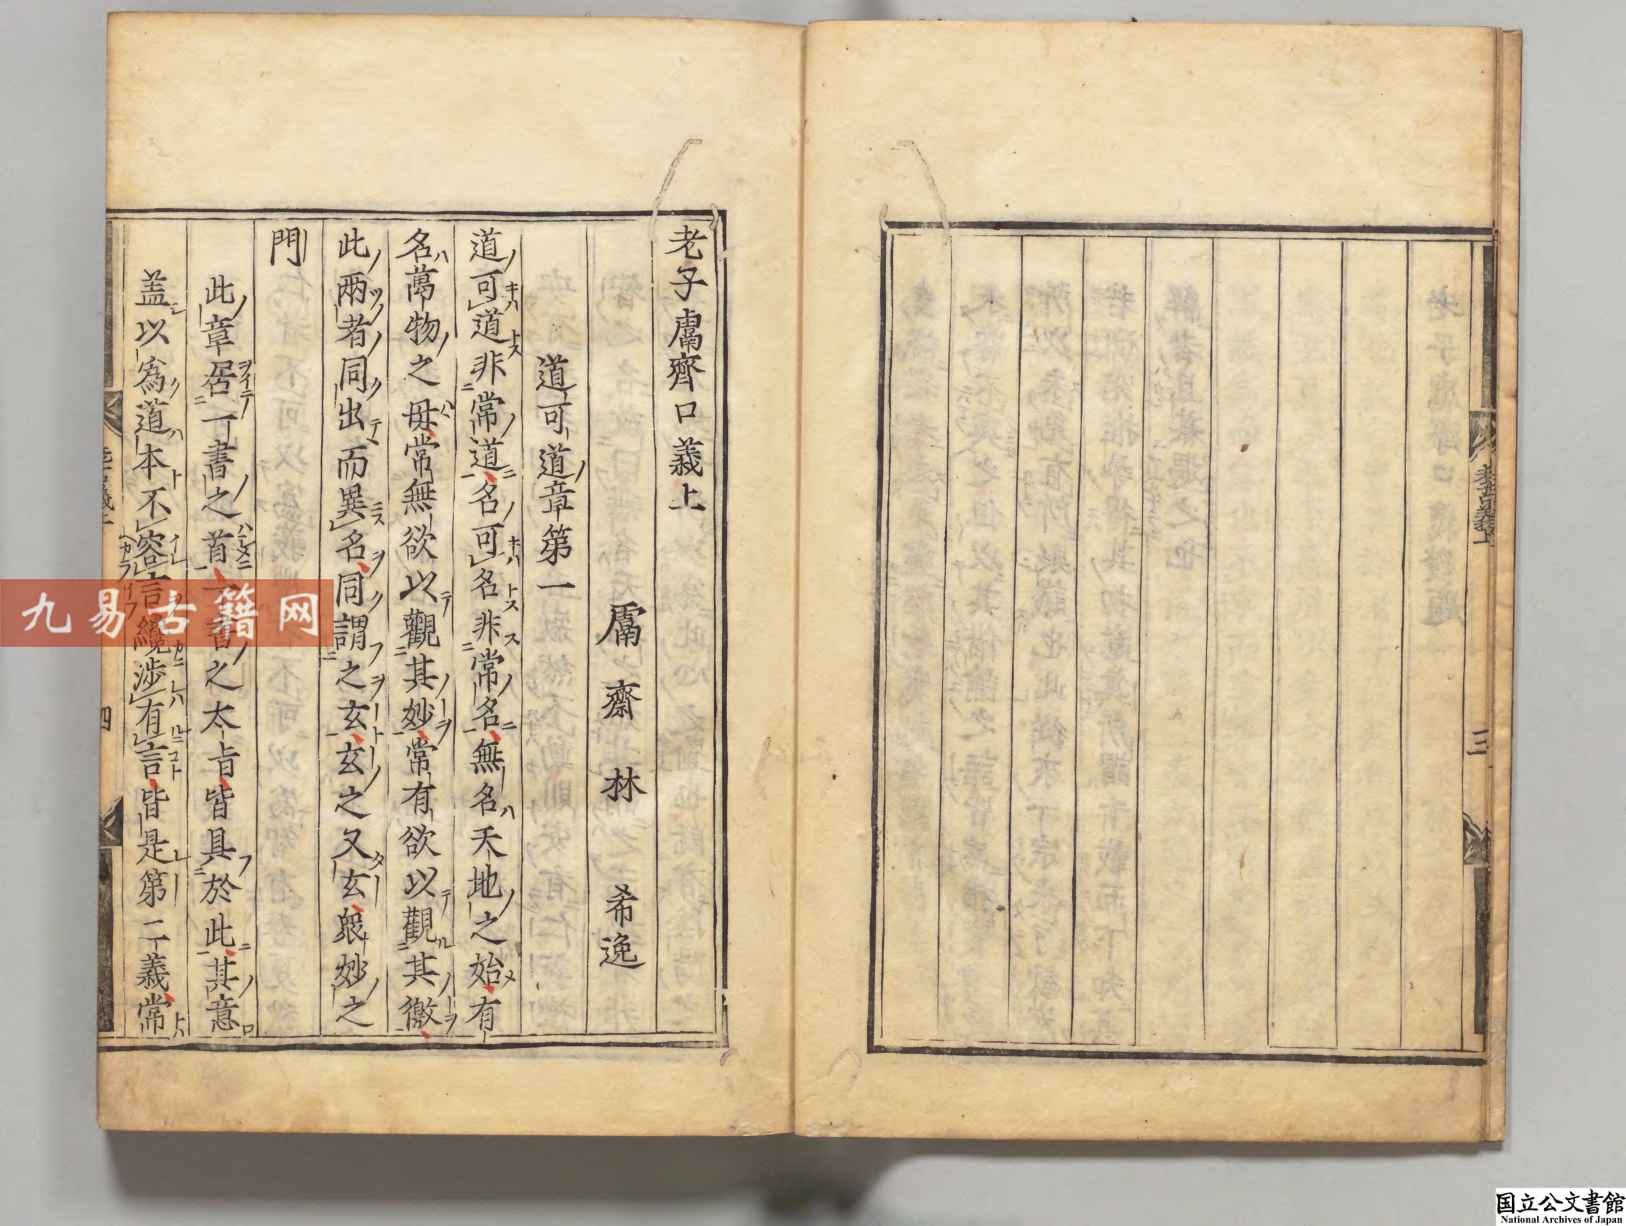 三
老子鬳齊口義上
鬳齋林希逸
道可道章第一
道可道非常道名可名非常名無名天地之始有
名萬物之母常無欲以觀其妙常有欲以觀其徼
此兩者同出而異名同謂之玄玄之又玄衆妙之
門
此章居一書之首一書之大㫖皆具於此其意
盖以爲道本不容言纔涉有言皆是第二義常
四
九易古籍网
国立公文書館
National Archives of Japan